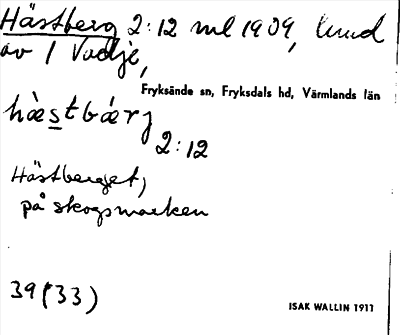 Hästberg 2:12 ml 1909, lund
av 1 Vadje,
Fryksände sn, Fryksdals hd, Värmlands län
hæ̀stbǽrj
2:12
Hästberget,
på skogsmarken
39(33)
ISAK WALLIN 1911